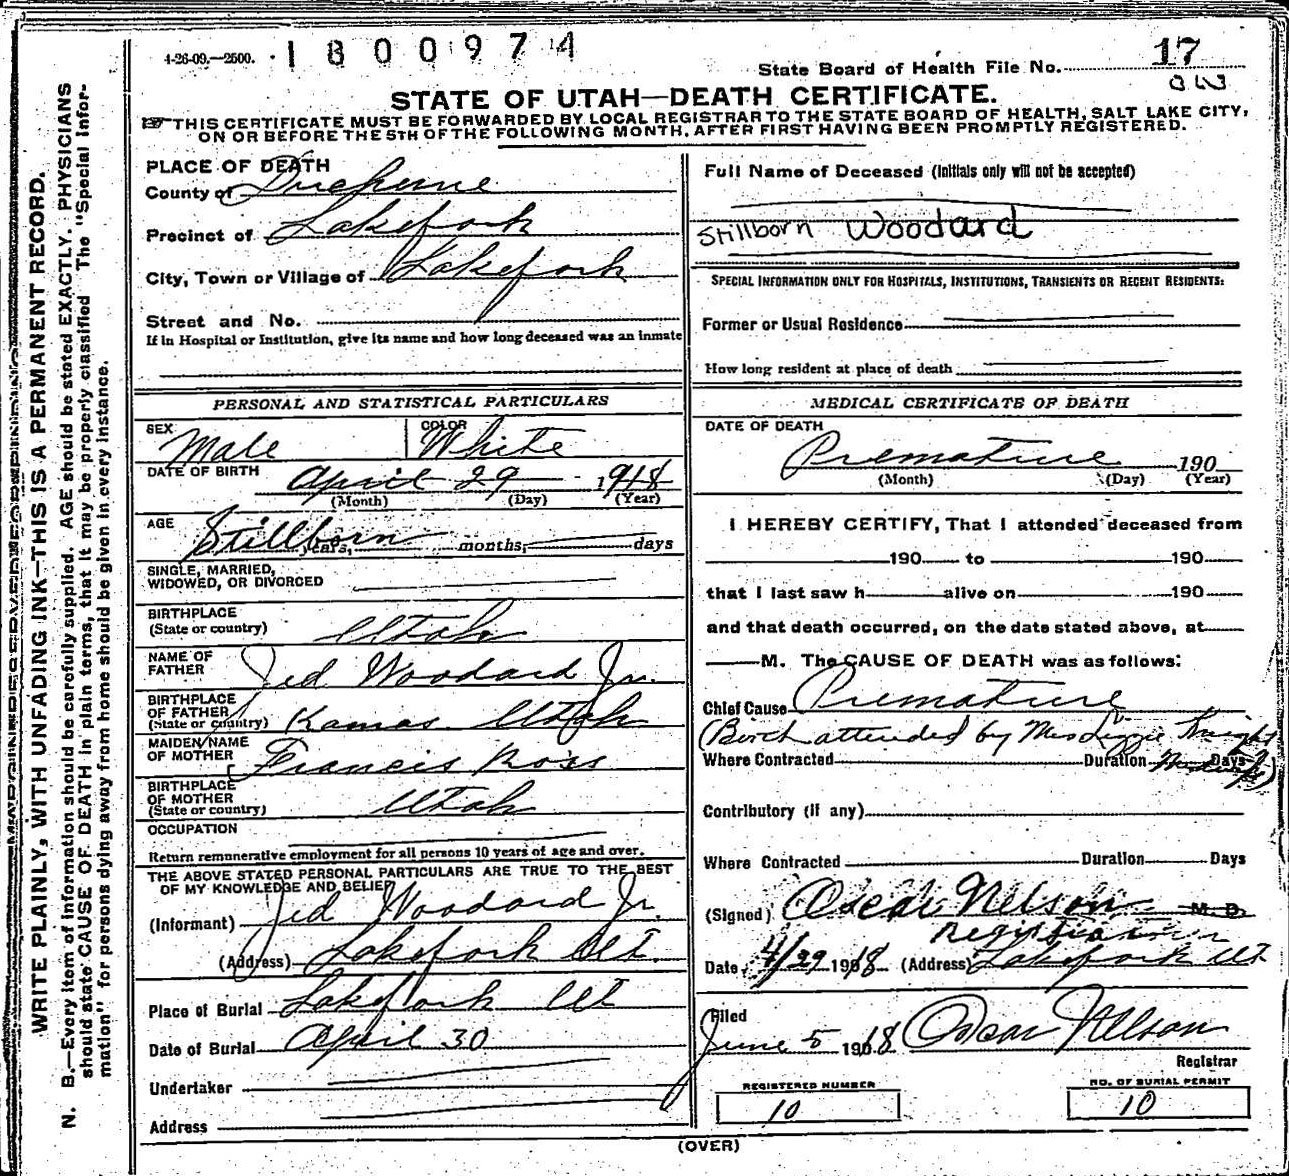 4-26-09.—2500. 1800974
State Board of Health File No. 17
STATE OF UTAH—DEATH CERTIFICATE.
THIS CERTIFICATE MUST BE FORWARDED BY LOCAL REGISTRAR TO THE STATE BOARD OF HEALTH, SALT LAKE CITY,
ON OR BEFORE THE 5TH OF THE FOLLOWING MONTH, AFTER FIRST HAVING BEEN PROMPTLY REGISTERED.
WRITE PLAINLY, WITH UNFADING INK—THIS IS A PERMANENT RECORD.
N. B.—Every item of information should be carefully supplied. AGE should be stated EXACTLY. PHYSICIANS
should state CAUSE OF DEATH in plain terms, that it may be properly classified. The "Special Infor-
mation" for persons dying away from home should be given in every instance.
PLACE OF DEATH
County of Duchesne
Precinct of Lakefork
City, Town or Village of Lakefork
Street and No.
If in Hospital or Institution, give its name and how long deceased was an inmate
PERSONAL AND STATISTICAL PARTICULARS
SEX Male COLOR White
DATE OF BIRTH April 29 1918
(Month) (Day) (Year)
AGE Stillborn years, months, days
SINGLE, MARRIED,
WIDOWED, OR DIVORCED
BIRTHPLACE
(State or country) Utah
NAME OF
FATHER Jed Woodard Jr.
BIRTHPLACE
OF FATHER
(State or country) Kamas Utah
MAIDEN NAME
OF MOTHER Francis Ross
BIRTHPLACE
OF MOTHER
(State or country) Utah
OCCUPATION
Return remunerative employment for all persons 10 years of age and over.
THE ABOVE STATED PERSONAL PARTICULARS ARE TRUE TO THE BEST
OF MY KNOWLEDGE AND BELIEF
(Informant) Jed Woodard Jr.
(Address) Lakefork Ut.
Place of Burial Lakefork Ut
Date of Burial April 30
Undertaker
Address
Full Name of Deceased (Initials only will not be accepted)
Stillborn Woodard
SPECIAL INFORMATION ONLY FOR HOSPITALS, INSTITUTIONS, TRANSIENTS OR RECENT RESIDENTS:
Former or Usual Residence
How long resident at place of death
MEDICAL CERTIFICATE OF DEATH
DATE OF DEATH
Premature 190
(Month) (Day) (Year)
I HEREBY CERTIFY, That I attended deceased from
190 to 190
that I last saw h alive on 190
and that death occurred, on the date stated above, at
M. The CAUSE OF DEATH was as follows:
Chief Cause Premature
(Birth attended by Mrs Lizzie Knight
Where Contracted Duration Days
Midwife)
Contributory (if any)
Where Contracted Duration Days
(Signed) Oscar Nelson M. D.
Registrar
Date 4/29 1918 (Address) Lakefork Ut
Filed
June 5 1918 Oscar Nelson
Registrar
REGISTERED NUMBER
10
NO. OF BURIAL PERMIT
10
(OVER)